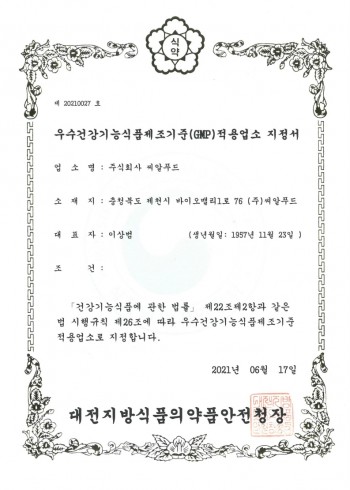 식약
제 20210027 호
우수건강기능식품제조기준(GMP)적용업소 지정서
업 소 명 : 주식회사 씨알푸드
소 재 지 : 충청북도 제천시 바이오밸리1로 76 (주)씨알푸드
대 표 자 : 이상범 (생년월일: 1957년 11월 23일 )
조 건 :
「건강기능식품에 관한 법률」 제22조제2항과 같은
법 시행규칙 제26조에 따라 우수건강기능식품제조기준
적용업소로 지정합니다.
2021년 06월 17일
대전지방식품의약품안전청장